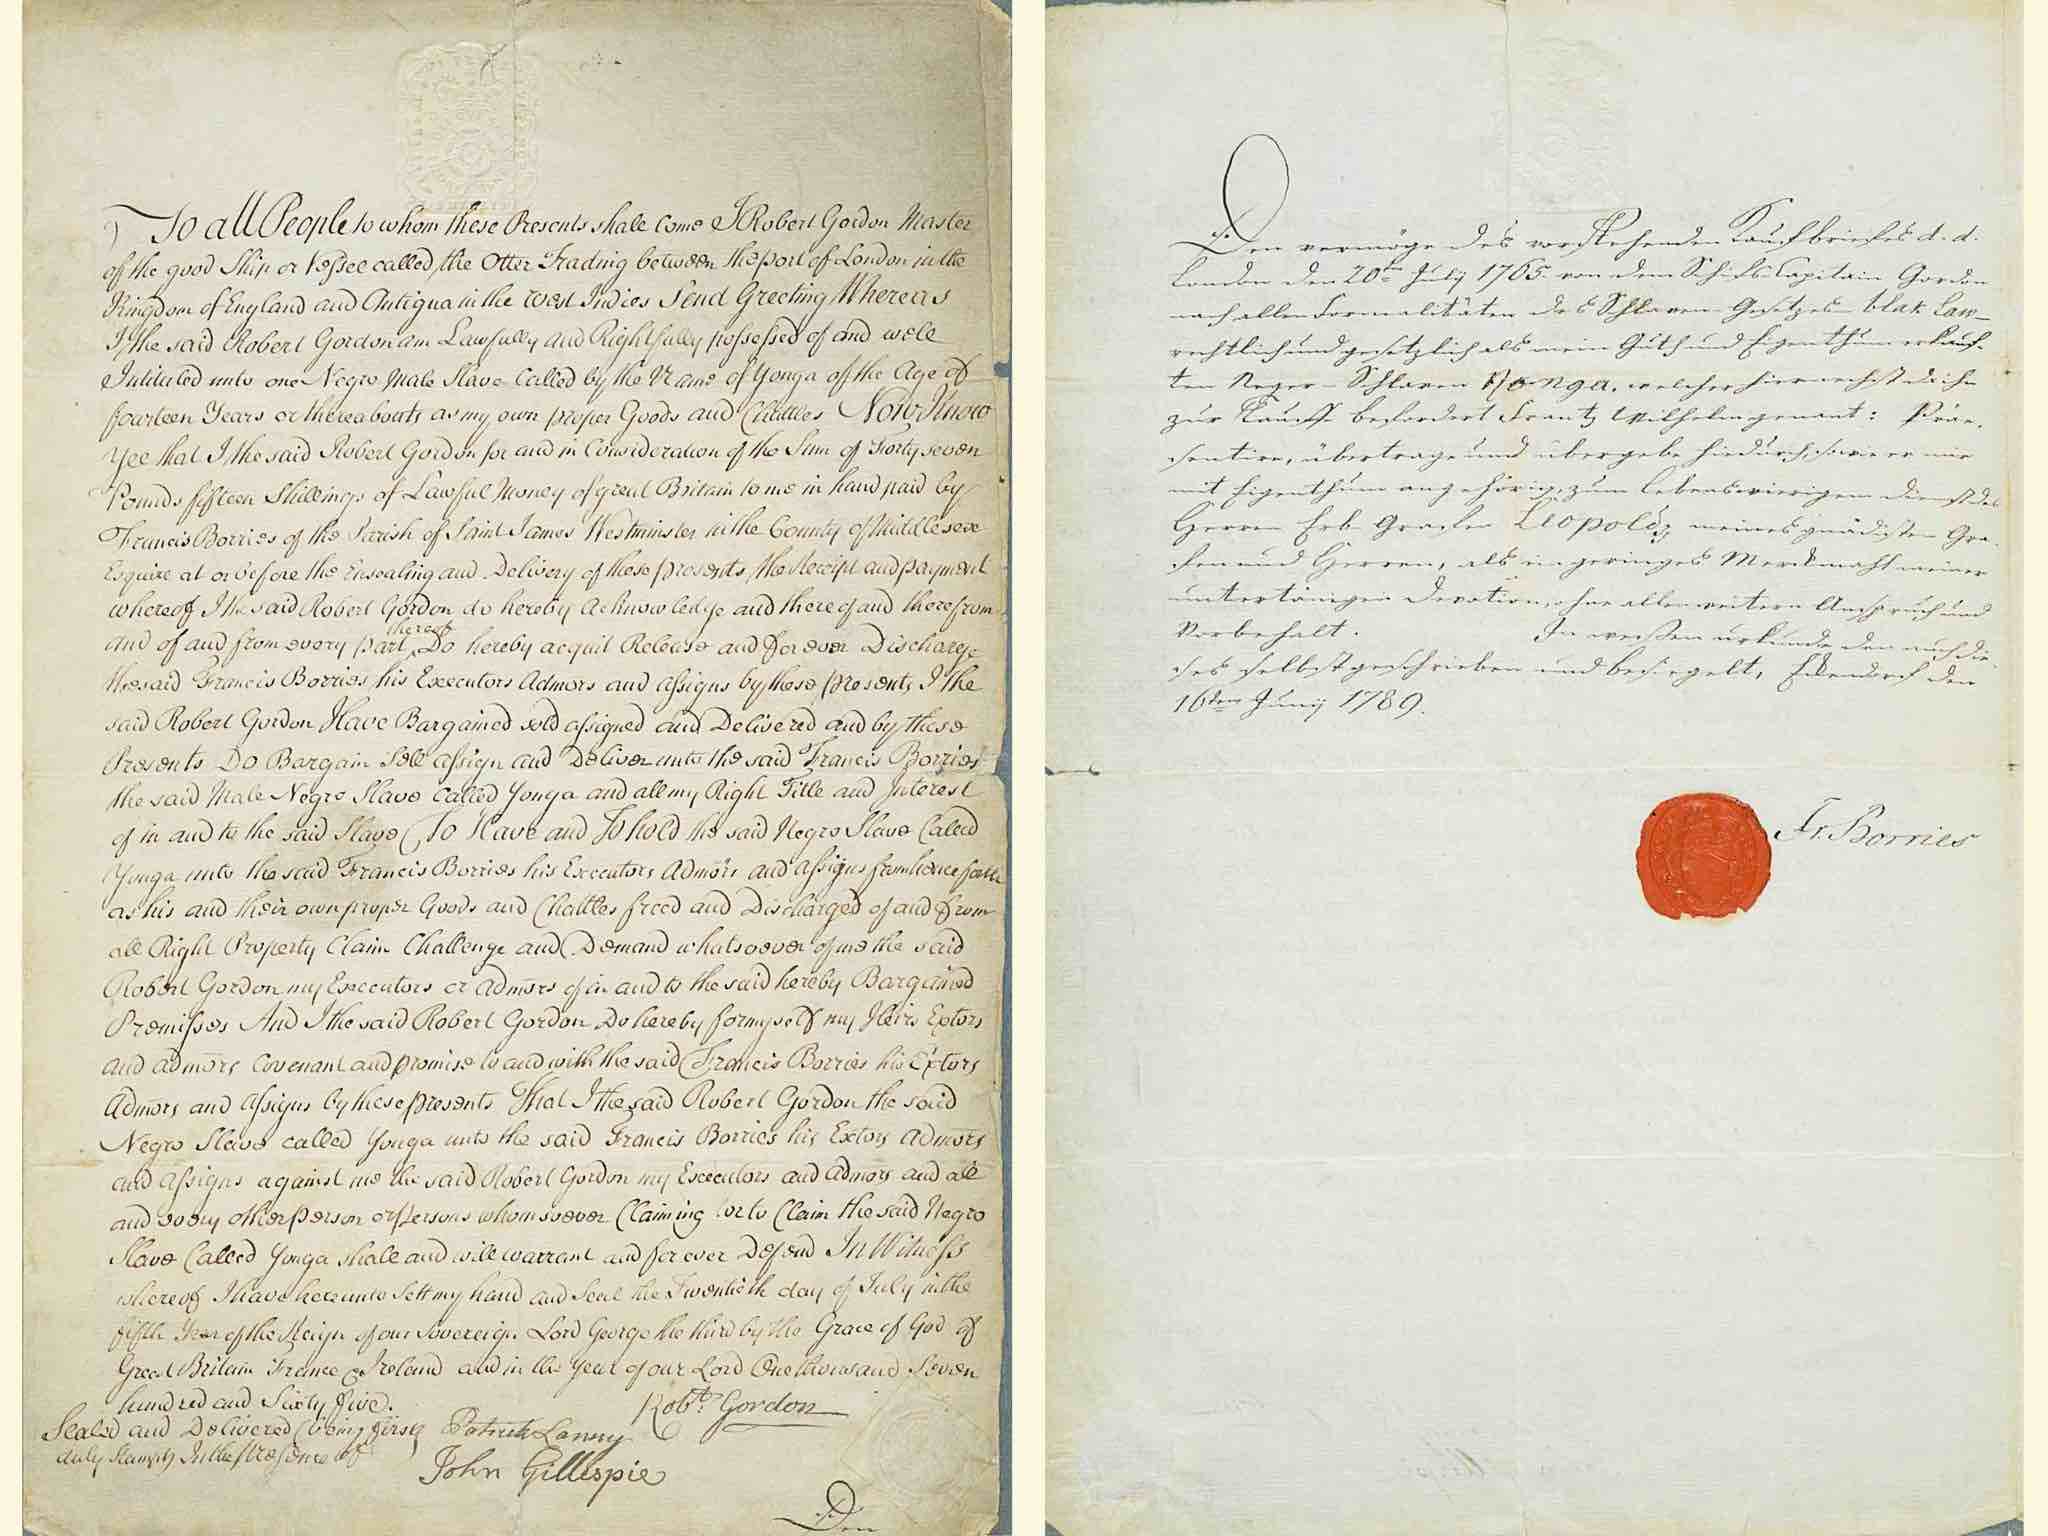 To all People to whom these Presents shall Come I Robert Gordon Master
of the good Ship or Vessel called the Otter Trading between the port of London in the
Kingdom of England and Antigua in the West Indies Send Greeting Whereas
I the said Robert Gordon am Lawfully and Rightfully possessed of and well
Intituled unto one Negro Male Slave Called by the Name of Yonga of the Age of
fourteen Years or thereabouts as my own proper Goods and Chattles Now Know
Yee that I the said Robert Gordon for and in Consideration of the Sum of Forty seven
Pounds fifteen Shillings of Lawful Money of great Britain to me in hand paid by
Francis Borries of the Parish of Saint James Westminster in the County of Middlesex
Esquire at or before the Ensealing and Delivery of these presents the Receipt and payment
whereof I the said Robert Gordon do hereby acknowledge and thereof and therefrom
and of and from every part thereof Do hereby acquit Release and for ever Discharge
the said Francis Borries his Executors Admors and Assigns by these presents I the
said Robert Gordon Have Bargained sold assigned and Delivered and by these
Presents Do Bargain Sell assign and Deliver unto the said Francis Borries
the said Male Negro Slave Called Yonga and all my Right Title and Interest
of in and to the said Slave To Have and To hold the said Negro Slave Called
Yonga unto the said Francis Borries his Executors Admors and assigns from henceforth
as his and their own proper Goods and Chattles freed and Discharged of and from
all Right Property Claim Challenge and Demand whatsoever of me the said
Robert Gordon my Executors or Admors of in and to the said hereby Bargained
Premisses And I the said Robert Gordon Do hereby for myself my Heirs Extors
and admors Covenant and promise to and with the said Francis Borries his Extors
Admors and Assigns by these presents That I the said Robert Gordon the said
Negro Slave called Yonga unto the said Francis Borries his Extors Admors
and Assigns against me the said Robert Gordon my Executors and Admors and all
and every other person or persons whomsoever Claiming or to Claim the said Negro
Slave Called Yonga shall and will warrant and for ever Defend In Witness
whereof I have hereunto Sett my hand and Seal the Twentieth day of July in the
fifth Year of the Reign of our Sovereign Lord George the third by the Grace of God of
Great Britain France & Ireland and in the Year of our Lord One thousand Seven
hundred and Sixty five.
Robt. Gordon
Sealed and Delivered (being first
duly Stampt) In the presence of
Patrick
John Gillespie
Den
Den vermöge des vorstehenden Kaufbriefes d. d.
London den 20ten July 1765 von dem Schifs Capitain Gordon
nach allen Formalitäten des Schlaven-Gesetzes blak Law
rechtlich und gesetzlich als mein Guth und Eigenthum erkauf-
ten Neger-Schlaven Yonga, welcher hiernechst durch
zur Tauffe befordert Frantz Wilhelm genant: Präe-
sentire, übertrage und übergebe hiedurch, sowie er mir
mit Eigenthum angehörig, zum lebenswierigem Dienst des
Herren Erb Grafen Leopold, meines gnädigsten Gra-
fen und Herren, als ein geringes Merckmahl meiner
untertänigen Devotion, ohne allen weitern Anspruch und
Vorbehalt. In wessen urkunde den auch die-
ses selbst geschrieben und besiegelt, Eckendorf den
16ten Junij 1789.
Fr. Borries